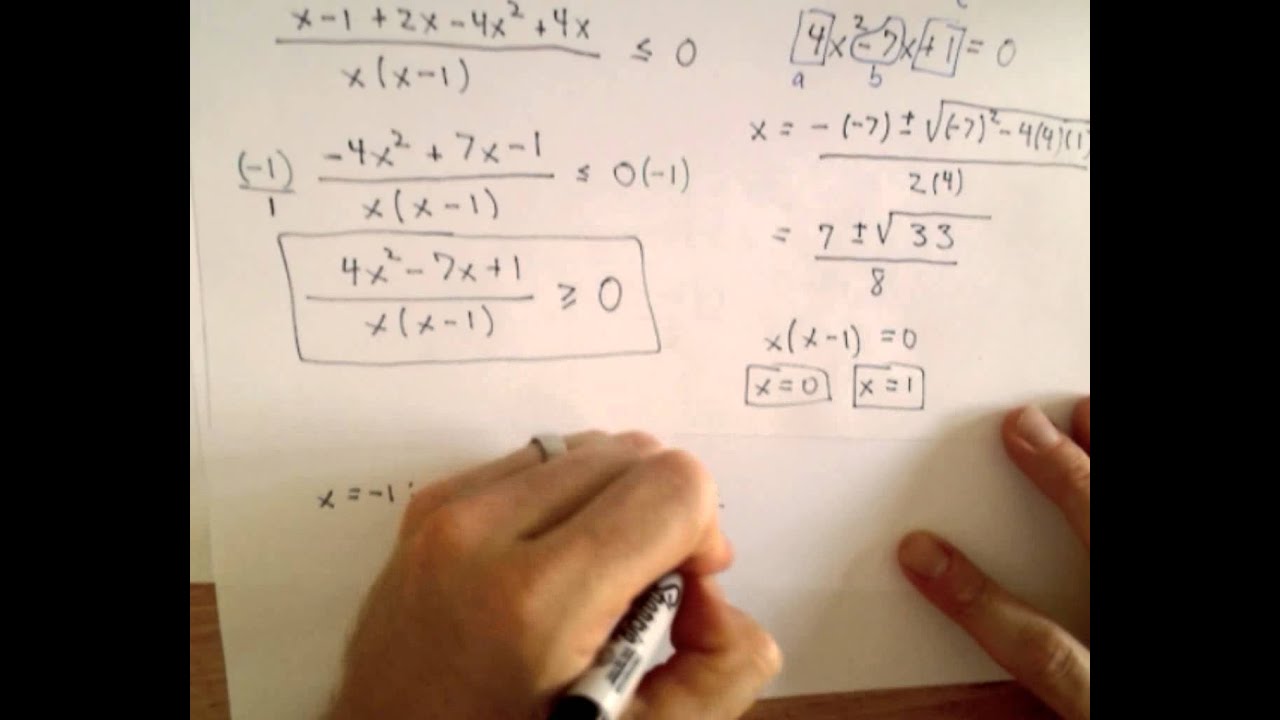 x-1+2x-4x²+4x / x(x-1) ≤ 0
(-1)/1 -4x²+7x-1 / x(x-1) ≤ 0(-1)
4x²-7x+1 / x(x-1) ≥ 0
x=-1:
4x²-7x+1=0
a b
x = -(-7)±√(-7)²-4(4)(1) / 2(4)
= 7±√33 / 8
x(x-1)=0
x=0 x=1
Sharpie